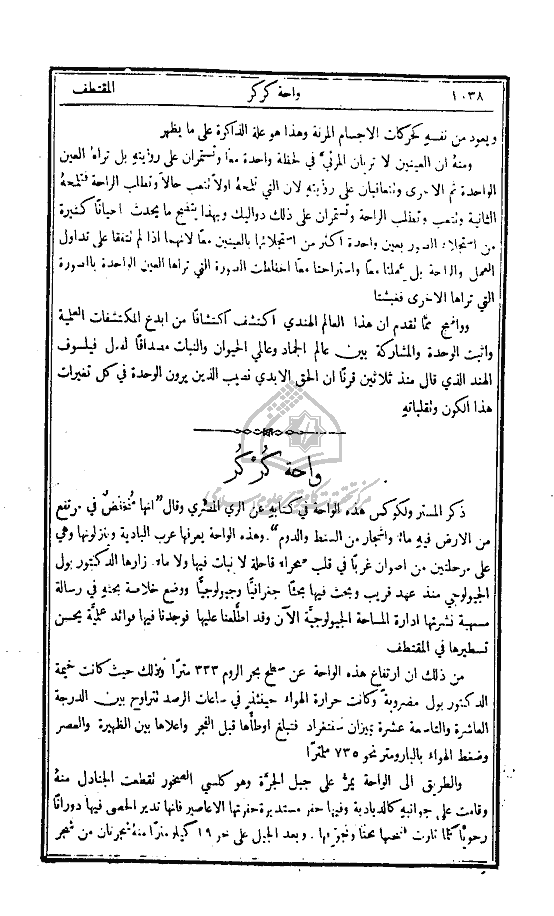 ١٠٣٨
واحة كركر
المقتطف
ويعود من نفسهِ كحركات الاجسام المرنة وهذا هو علة الذاكرة على ما يظهر
ومنهُ ان العينين لا تريان المرئيَّ في لحظة واحدة معًا وتستمران على رؤيتهِ بل تراهُ العين
الواحدة ثم الاخرى وتتعاقبان على رؤيتهِ لان التي تلمحهُ اولاً تتعب حالاً وتطلب الراحة فتلمحهُ
الثانية وتتعب وتطلب الراحة وتستمران على ذلك دواليك وبهذا يتضح ما يحدث احيانًا كثيرة
من استجلاء الصور بعين واحدة اكثر من استجلائها بالعينين معًا لانهما اذا لم تتفقا على تداول
العمل والراحة بل عملتا معًا واستراحتا معًا اختلطت الصورة التي تراها العين الواحدة بالصورة
التي تراها الاخرى فغبشتا
وواضح ممَّا تقدم ان هذا العالم الهندي اكتشف اكتشافًا من ابدع المكتشفات العلمية
واثبت الوحدة والمشاركة بين عالم الجماد وعالمي الحيوان والنبات مصداقًا لقول فيلسوف
الهند الذي قال منذ ثلاثين قرنًا ان الحق الابدي نصيب الذين يرون الوحدة في كل تغيرات
هذا الكون وتقلباتهِ
واحة كُرْكُر
ذكر المستر ولكوكس هذه الواحة في كتابهِ عن الري المصري وقال "انها مُنخفَضٌ في مرتفع
من الارض فيهِ ماءٌ واشجار من السنط والدوم". وهذه الواحة يعرفها عرب البادية وينزلونها وهي
على مرحلتين من اصوان غربًا في قلب صحراء قاحلة لا نبات فيها ولا ماء. زارها الدكتور بول
الجيولوجي منذ عهد قريب وبحث فيها بحثًا جغرافيًّا وجيولوجيًّا ووضع خلاصة بحثهِ في رسالة
مسهبة نشرتها ادارة المساحة الجيولوجيَّة الآن وقد اطَّلعنا عليها فوجدنا فيها فوائد علميَّة يحسن
تسطيرها في المقتطف
من ذلك ان ارتفاع هذه الواحة عن سطح بحر الروم ٣٣٣ مترًا وذلك حيث كانت خيمة
الدكتور بول مضروبة وكانت حرارة الهواء حينئذٍ في ساعات الرصد تتراوح بين الدرجة
العاشرة والتاسعة عشرة بميزان سنتغراد فتبلغ اوطأها قبل الفجر واعلاها بين الظهيرة والعصر
وضغط الهواء بالبارومتر نحو ٧٣٥ ملمترًا
والطريق الى الواحة يمرُّ على جبل الجرَّة وهو كلسي الصخور تقطعت الجنادل منهُ
وقامت على جوانبهِ كالديادبة وفيها حفر مستديرة حفرتها الاعاصير فانها تدير الحصى فيها دورانًا
رحويًّا كلما ثارت فتنحتها نحتًا وتجوفها. وبعد الجبل على نحو ١٩ كيلومترًا منهُ شجرتان من شجر